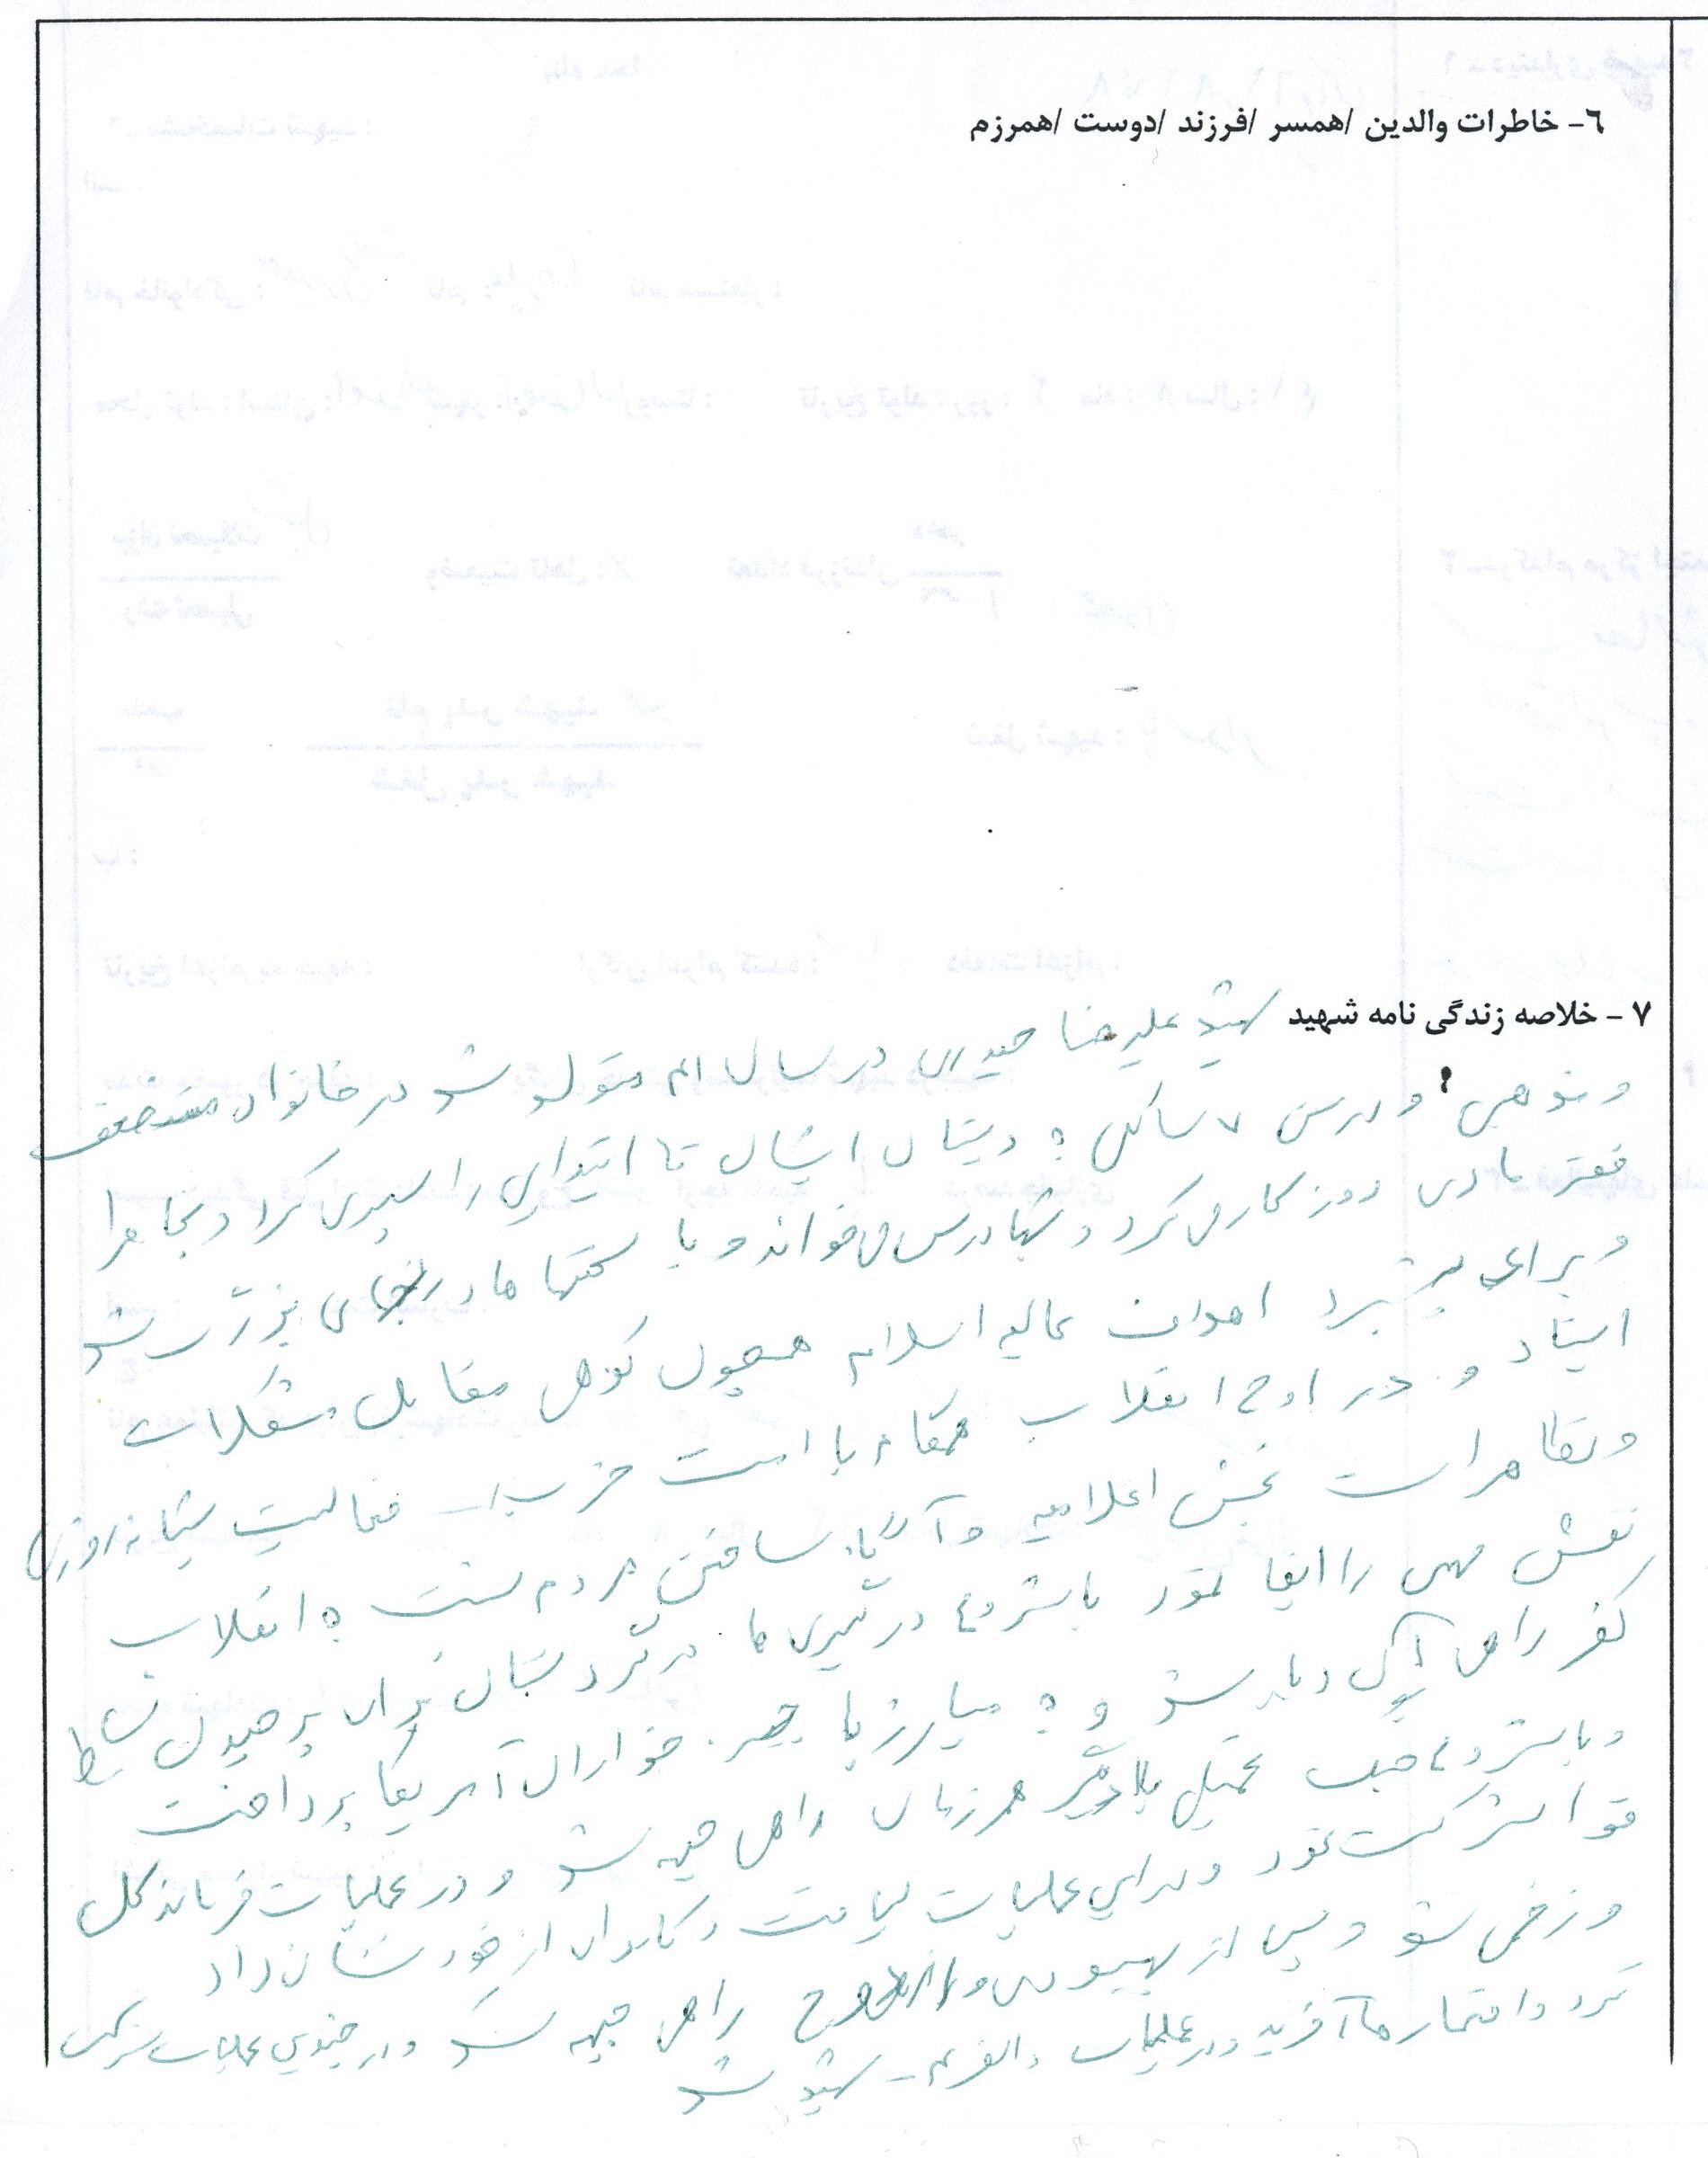 ٦- خاطرات والدین /همسر /فرزند /دوست /همرزم
٧ - خلاصه زندگی نامه شهید شهید علیرضا حیدری در سال ۴۱ متولد شد در خانواده مستضعف
و مذهبی و در سن ۷ سالگی به دبستان تا ابتدایی را سپری کرد و بخاطر
فقر مادی روز کار می کرد و شبها درس می خواند و با سختیها و رنجهای بزرگ شد
و برای پیشبرد اهداف عالیه اسلام همچون کوهی مقابل مشکلات
ایستاد و در اوج انقلاب همگام با امت حزب الله فعالیت شبانه روزی
و تظاهرات پخش اعلامیه و آگاه ساختن مردم نسبت به انقلاب
نقش مهمی را ایفا نمود با شروع درگیری ها در کردستان برای برچیدن بساط
کفر راهی آن دیار شد و به مبارزه با جیره خواران آمریکا پرداخت
و با شروع جنگ تحمیلی با دیگر همرزمان راهی جبهه شد و در عملیات فرمانده کل
قوا شرکت نمود و در این عملیات لیاقت و کاردانی از خود نشان داد
و زخمی شد و پس از بهبودی راهی جبهه شد و در چندین عملیات شرکت
کرد و افتخارها آفرید و در عملیات والفجر شهید شد